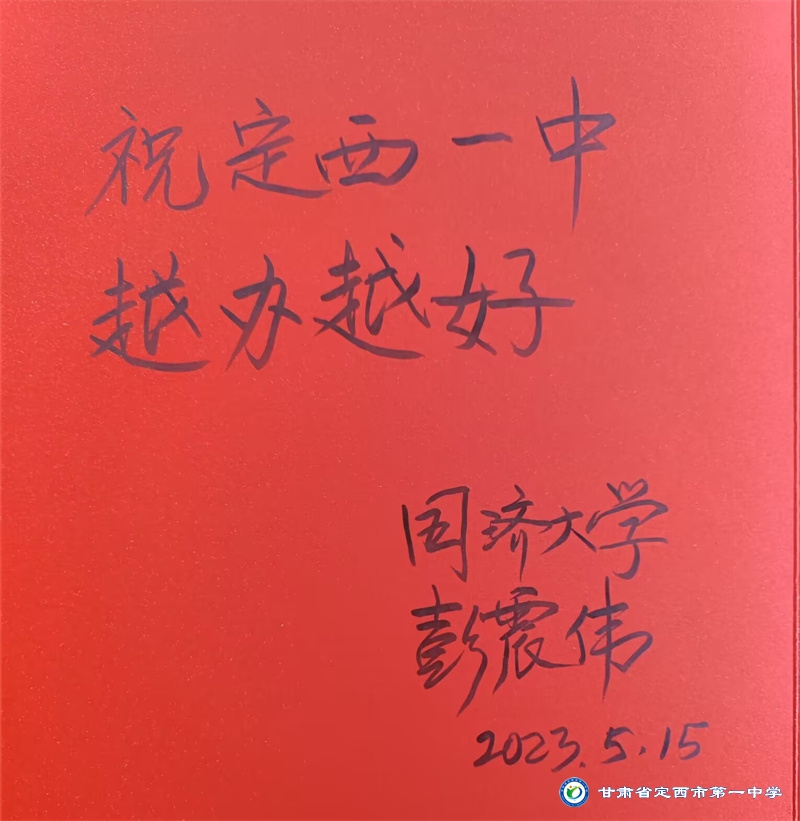 祝定西一中
越办越好
同济大学
彭震伟
2023.5.15
甘肃省定西市第一中学